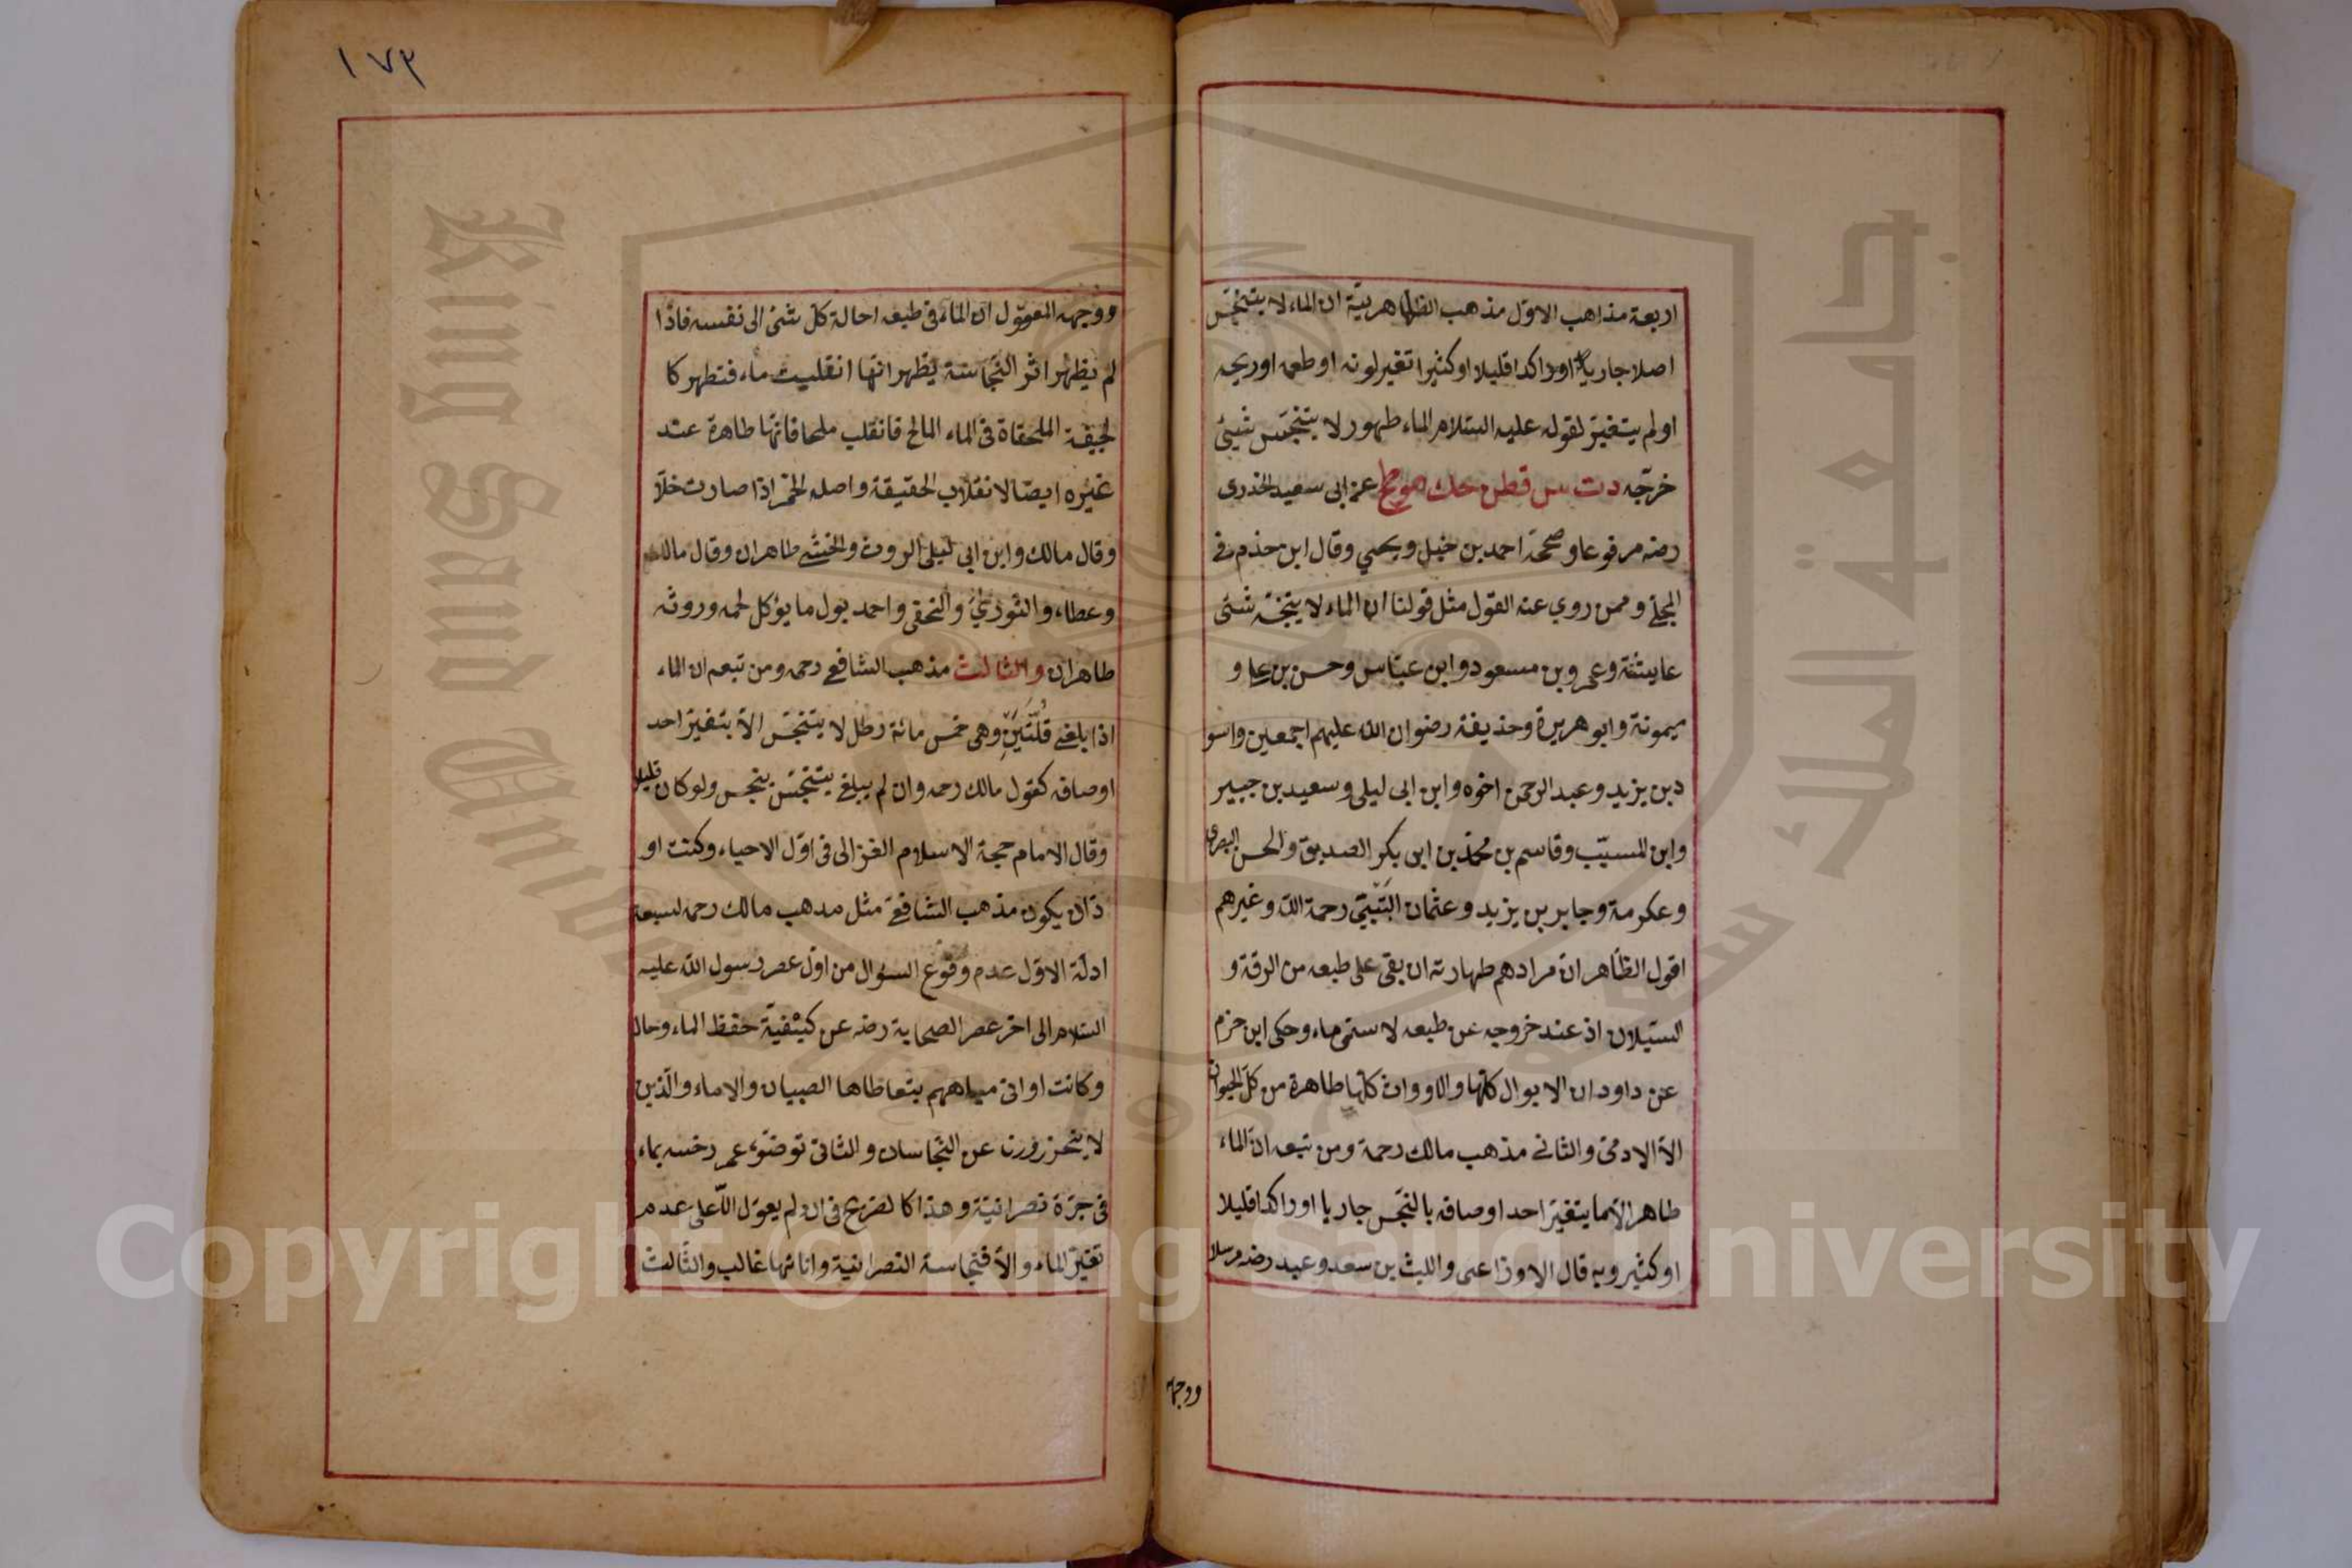 اربعة مذاهب الاوّل مذهب الظاهريّة ان الماء لا يتنجّس
اصلا جاريا او راكدا قليلا او كثيرا تغير لونه او طعمه او ريحه
او لم يتغيّر لقوله عليه السّلام الماء طهور لا يتنجّس شيئ
خرّجه دت س قطن حك هو طح عن ابى سعيد الخدرى
رضه مرفوعا وصححه احمد بن حنبل ويحيي وقال ابن حذم فى
المحلے وممن روي عنه القول مثل قولنا ان الماء لا ينجّسه شئ
عايشة وعمر وبن مسعود وابن عبّاس وحسن بن علے و
ميمونة وابو هريرة وحذيفة رضوان الله عليهم اجمعين واسو
د بن يزيد وعبد الرحمن اخوه وابن ابى ليلى وسعيد بن جبير
وابن المسيّب وقاسم بن محمّد بن ابى بكر الصديق والحسن البصرى
وعكرمة وجابر بن يزيد وعثمان البَتّيتّي رحمة الله وغيرهم
اقول الظاهر انّ مرادهم طهارته ان بقى على طبعه من الرقة و
السيلان اذ عند خروجه عن طبعه لا سمّى ماء وحكى ابن حزم
عن داود ان الابوال كلّها والاوواث كلّها طاهرة من كلّ الحيوان
الّا الادمىّ والثانى مذهب مالك رحمة ومن تبعه انّ الماء
طاهر الّا بما يتغيّر احد اوصافه بالنجّس جاريا او راكدا قليلا
او كثير وبه قال الاوزاعى والليث بن سعد وعبد رضه مرسلا
ووجه
١٧٣
ووجهه المعقول انّ الماء فى طبعه احالة كلّ شئ الى نفسه فاذا
لم يظهر اثر النّجاسة يظهر انّها انقلبت ماء فتطهر كا
لجيفة الملحقاة فى الماء المالح فانقلب ملحا فانّها طاهرة عند
غيره ايضا لانقلاب الحقيقة واصله الخمر اذا صارت خلّا
وقال مالك وابن ابى ليلى الروث والخشے طاهران وقال مالك
وعطاء والثوري والنخعى واحمد بول ما يؤكل لحمه وروثه
طاهران والثالث مذهب الشافعے رحمه ومن تبعه ان الماء
اذا بلغے قُلَّتَينِ وهى خمس مائة رطل لا يتنجّس الّا بتغيّر احد
اوصافه كقول مالك رحمه وان لم يبلغ يتنجّس بنجس ولو كان قليلا
وقال الامام حجة الاسلام الغزالى فى اوّل الاحياء وكنت او
دّ ان يكون مذهب الشافعے مثل مدهب مالك رحمه لسبعة
ادلّة الاوّل عدم وقوع السوال من اول عصر رسول الله عليه
السّلام الى اخر عصر الصحابة رضه عن كيفية حفظ الماء وحال
وكانت اوانى مياههم يتعاطاها الصبيان والاماء والّذين
لا يتحزرون عن النّجاسات والثانى توضّوء عمر رضه بماء
فى جرّة نصرانيّة وهذا كا لصّريح فى ان لم يعوّل الّا على عدم
تغيّر الماء والّا فنجاسة النصرانية وانائها غالب والثّالث